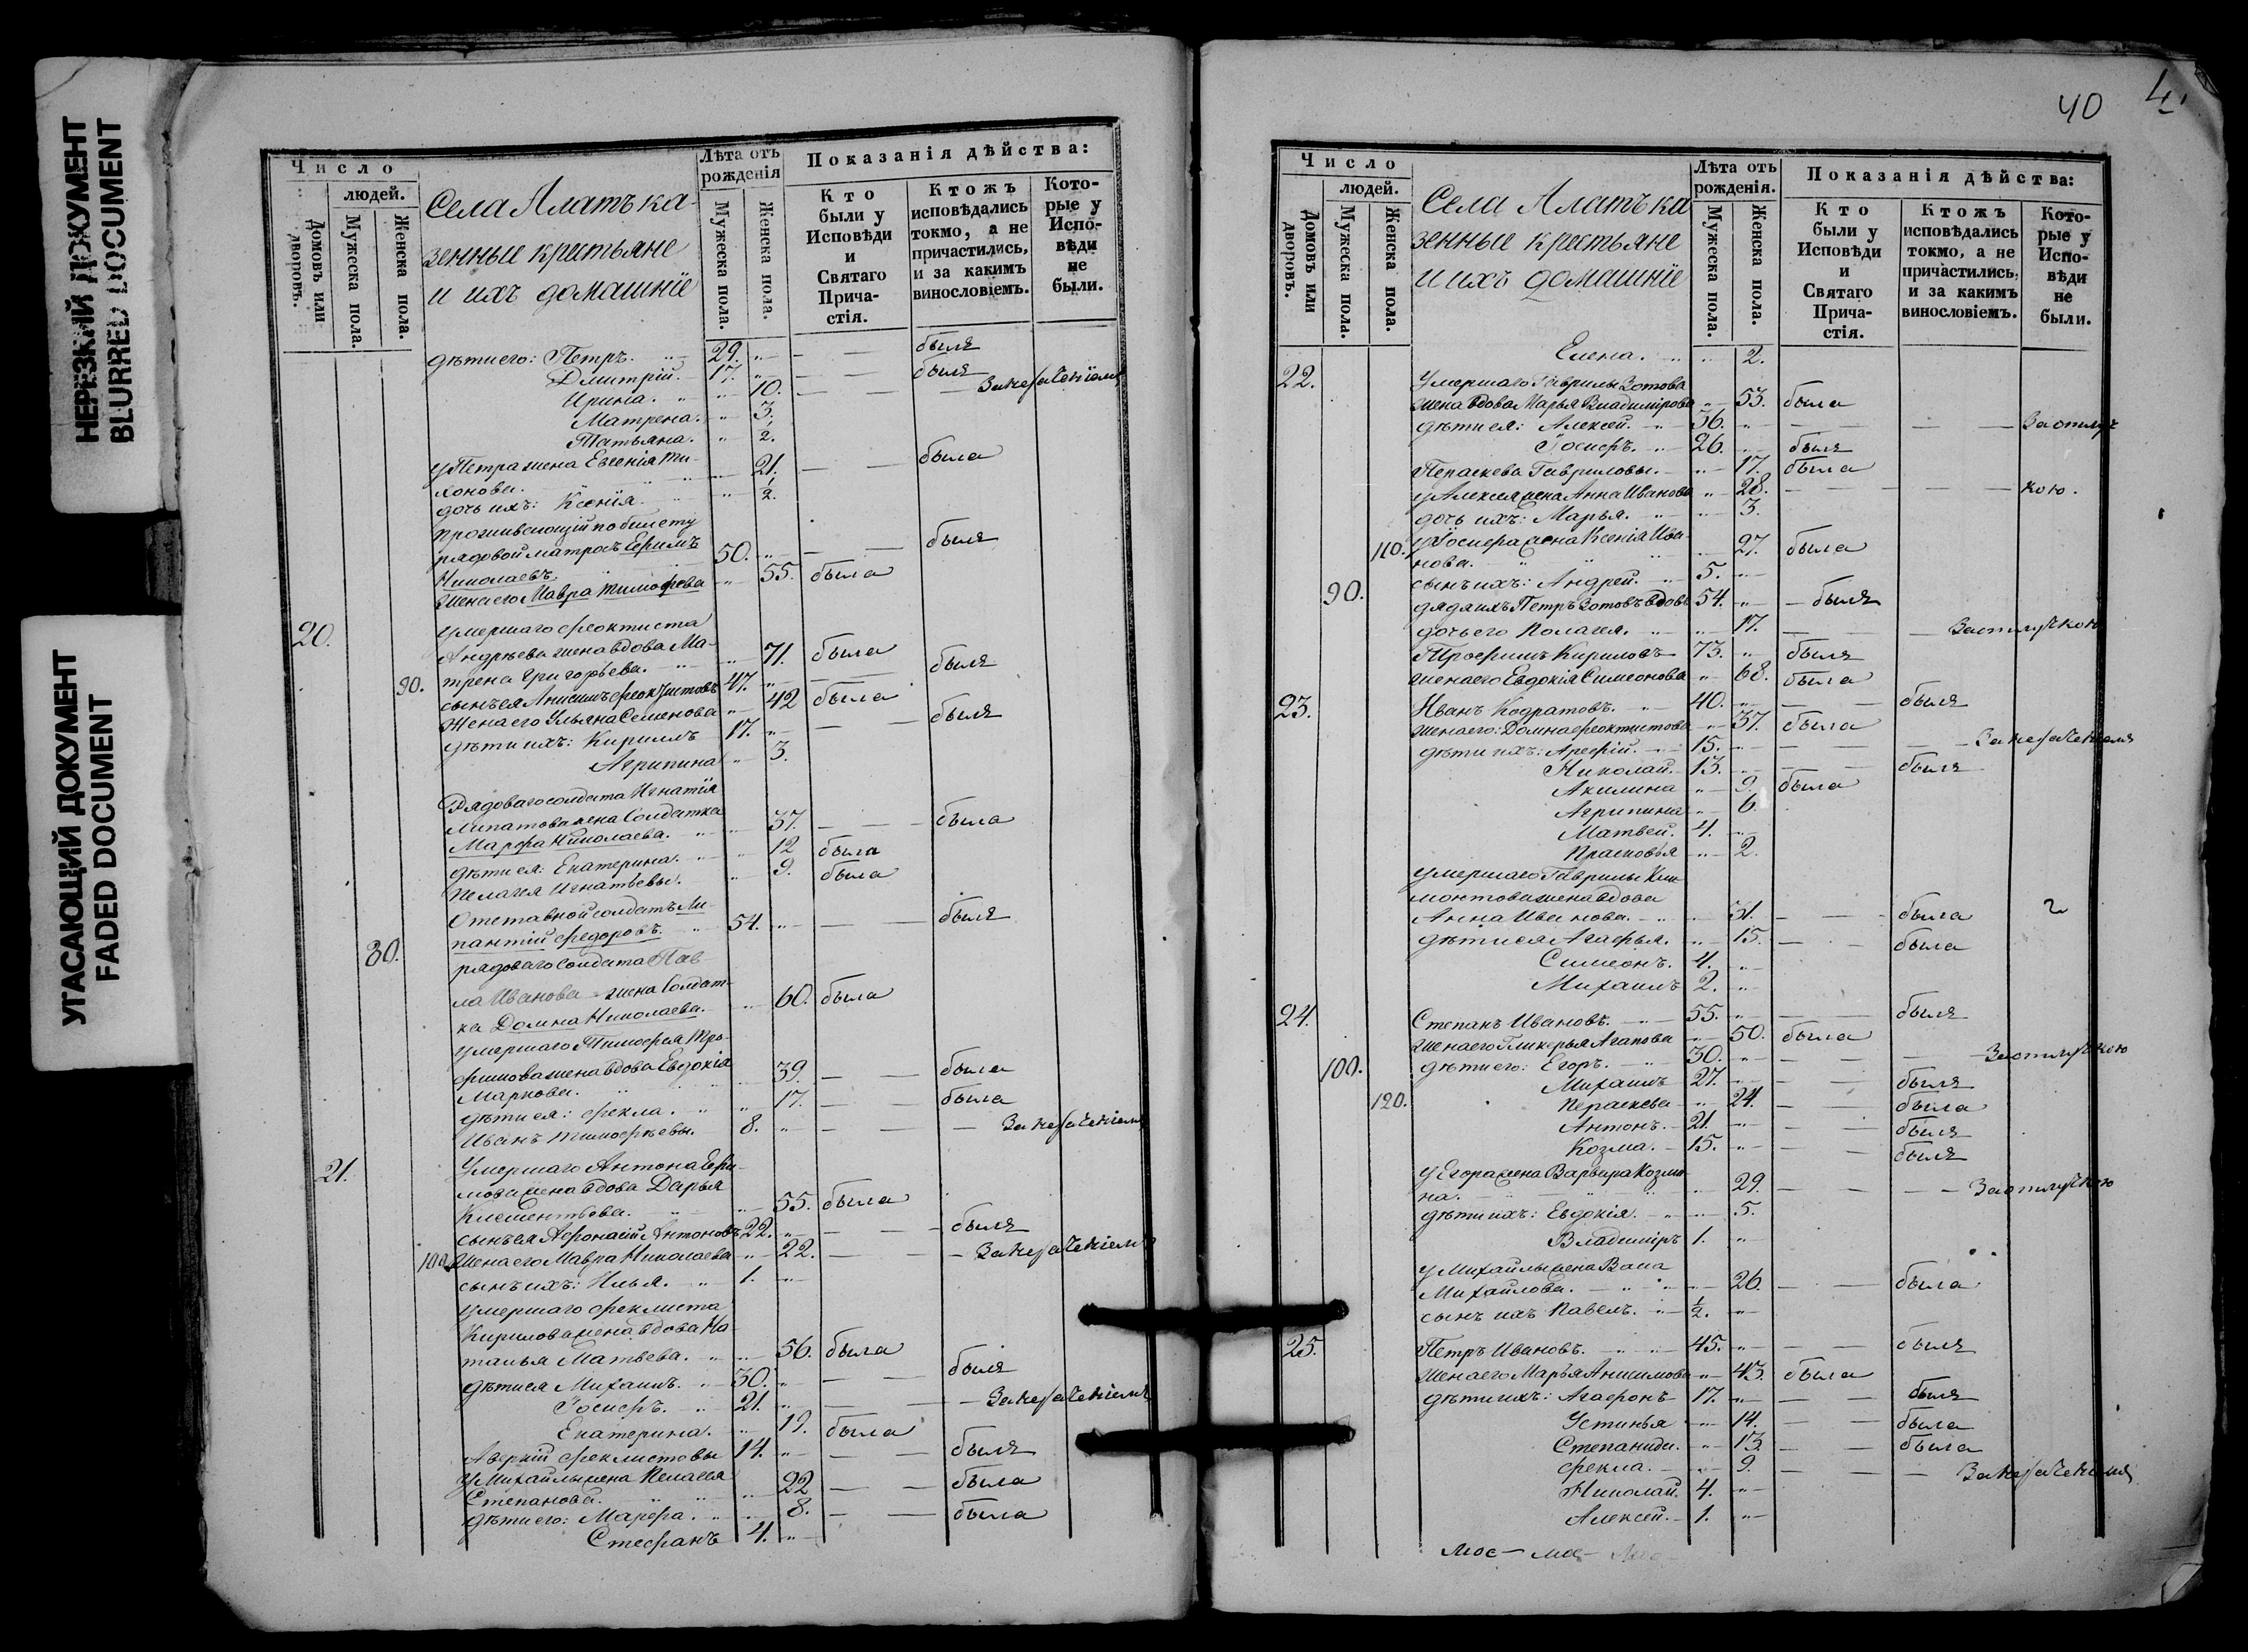 НЕРЕЗКИЙ ДОКУМЕНТ
BLURRED DOCUMENT
УГАСАЮЩИЙ ДОКУМЕНТ
FADED DOCUMENT
Число
людей.
Домовъ или дворовъ.
Мужеска пола.
Женска пола.
Села Алатъ ка-
зенные крестьяне
и ихъ домашніе
Лѣта отъ рожденія
Мужеска пола.
Женска пола.
Показанія дѣйства:
Кто были у Исповѣди и Святаго Прича-стія.
Ктожъ исповѣдались токмо, а не причастились, и за какимъ винословіемъ.
Кото-рые у Испо-вѣди не были.
дѣти его: Петръ. 29. былъ
Дмитрій. 17. былъ
Ирина. 10.
Матрена. 3.
Татьяна. 2.
у Петра жена Евгенія Ти-
хонова. 21. была
дочь ихъ: Ксенія. 1/2.
проживающій по билету
рядовой матросъ Ефимъ
Николаевъ. 50. былъ
жена его Мавра Тимофѣева 55. была
20. умершаго Феоктиста
Андрѣева жена вдова Ма-
трена Григорьева. 71. была
90. сынъ ея Анисимъ Феоктистовъ 47. былъ
Жена его Ульяна Семенова 42 была
дѣти ихъ: Кирилъ 17. былъ
Агрипина 3.
Рядоваго солдата Игнатія
Липатова жена Солдатка
Марфа Николаева. 37. была
дѣти ея: Екатерина. 12 была
Пелагея Игнатьевы. 9. была
Отставной солдатъ Ли-
пантій Федоровъ. 54. былъ
80. рядоваго Солдата Пав-
ла Иванова жена Солдат-
ка Домна Николаева. 60. была
умершаго Тимофея Тро-
фимова жена вдова Евдокія
Маркова. 39. была
дѣти ея: Фекла. 17. была
Иванъ Тимофѣевы. 8.
21. Умершаго Антона Ефи-
мова жена вдова Дарья
Климентьева. 55. была
сынъ ея Афонасій Антоновъ 22. былъ
100. Жена его Мавра Николаева 22.
сынъ ихъ: Илья. 1.
умершаго Феклиста
Кирилова жена вдова На-
талья Матвѣева. 56. была
дѣти ея Михаилъ. 30. былъ
Іосифъ. 21.
Екатерина. 19. была
Аверкій Феклистовы 14. былъ
у Михайлы жена Пелагея
Степанова. 22 была
дѣти его: Марфа. 8. была
Стефанъ 4.
40
Число
людей.
Домовъ или дворовъ.
Мужеска пола.
Женска пола.
Села Алатъ ка
зенные крестьяне
и ихъ домашніе
Лѣта отъ рожденія.
Мужеска пола.
Женска пола.
Показанія дѣйства:
Кто были у Исповѣди и Святаго Прича-стія.
Ктожъ исповѣдались токмо, а не причастились, и за какимъ винословіемъ.
Кото-рые у Испо-вѣди не были.
Елена. 2.
22. Умершаго Гаврилы Зотова
жена вдова Марья Владимірова 53. была
дѣти ея: Алексѣй. 36. За отлуч
Іосифъ. 26. былъ
Параскева Гавриловы. 17. была
у Алексея жена Анна Иванова 28. кою.
дочь ихъ: Марья. 3.
110. у Іосифа жена Ксенія Ива-
нова. 27. была
сынъ ихъ: Андрей. 5.
90. дядя ихъ Петръ Зотовъ вдовъ 54. былъ
дочь его Пелагея. 17. За отлучкою
Трофимъ Кириловъ 73. былъ
жена его Евдокія Симеонова 68. была
23. Иванъ Кодратовъ. 40. былъ
жена его: Домна Феоктистова 37. была
дѣти ихъ: Арефій. 15.
Николай. 13. былъ
Акилина 9. была
Агрипина 6.
Матвей. 4.
Прасковья 2.
умершаго Гаврилы Кли-
монтова жена вдова
Анна Иванова. 31. была
дѣти ея Агафья. 15. была
Симеонъ. 4.
Михаилъ 2.
24. Степанъ Ивановъ. 55. былъ
жена его Гликерья Агапова 50. была
100. дѣти его: Егоръ. 30. За отлучкою
Михаилъ 27. былъ
120. Параскева 24. была
Антонъ. 21. былъ
Козма. 15. былъ
у Егора жена Варвара Козми-
на. 29. За отлучкою
дѣти ихъ: Евдокія. 5.
Владиміръ 1.
у Михайлы жена Васа
Михайлова. 26. была
сынъ ихъ Павелъ. 1/2.
25. Петръ Ивановъ. 45. былъ
жена его Марья Анисимова 43. была
дѣти ихъ: Агафонъ 17. былъ
Устинья 14. была
Степанида. 13. была
Фекла. 9.
Николай. 4.
Алексей. 1.